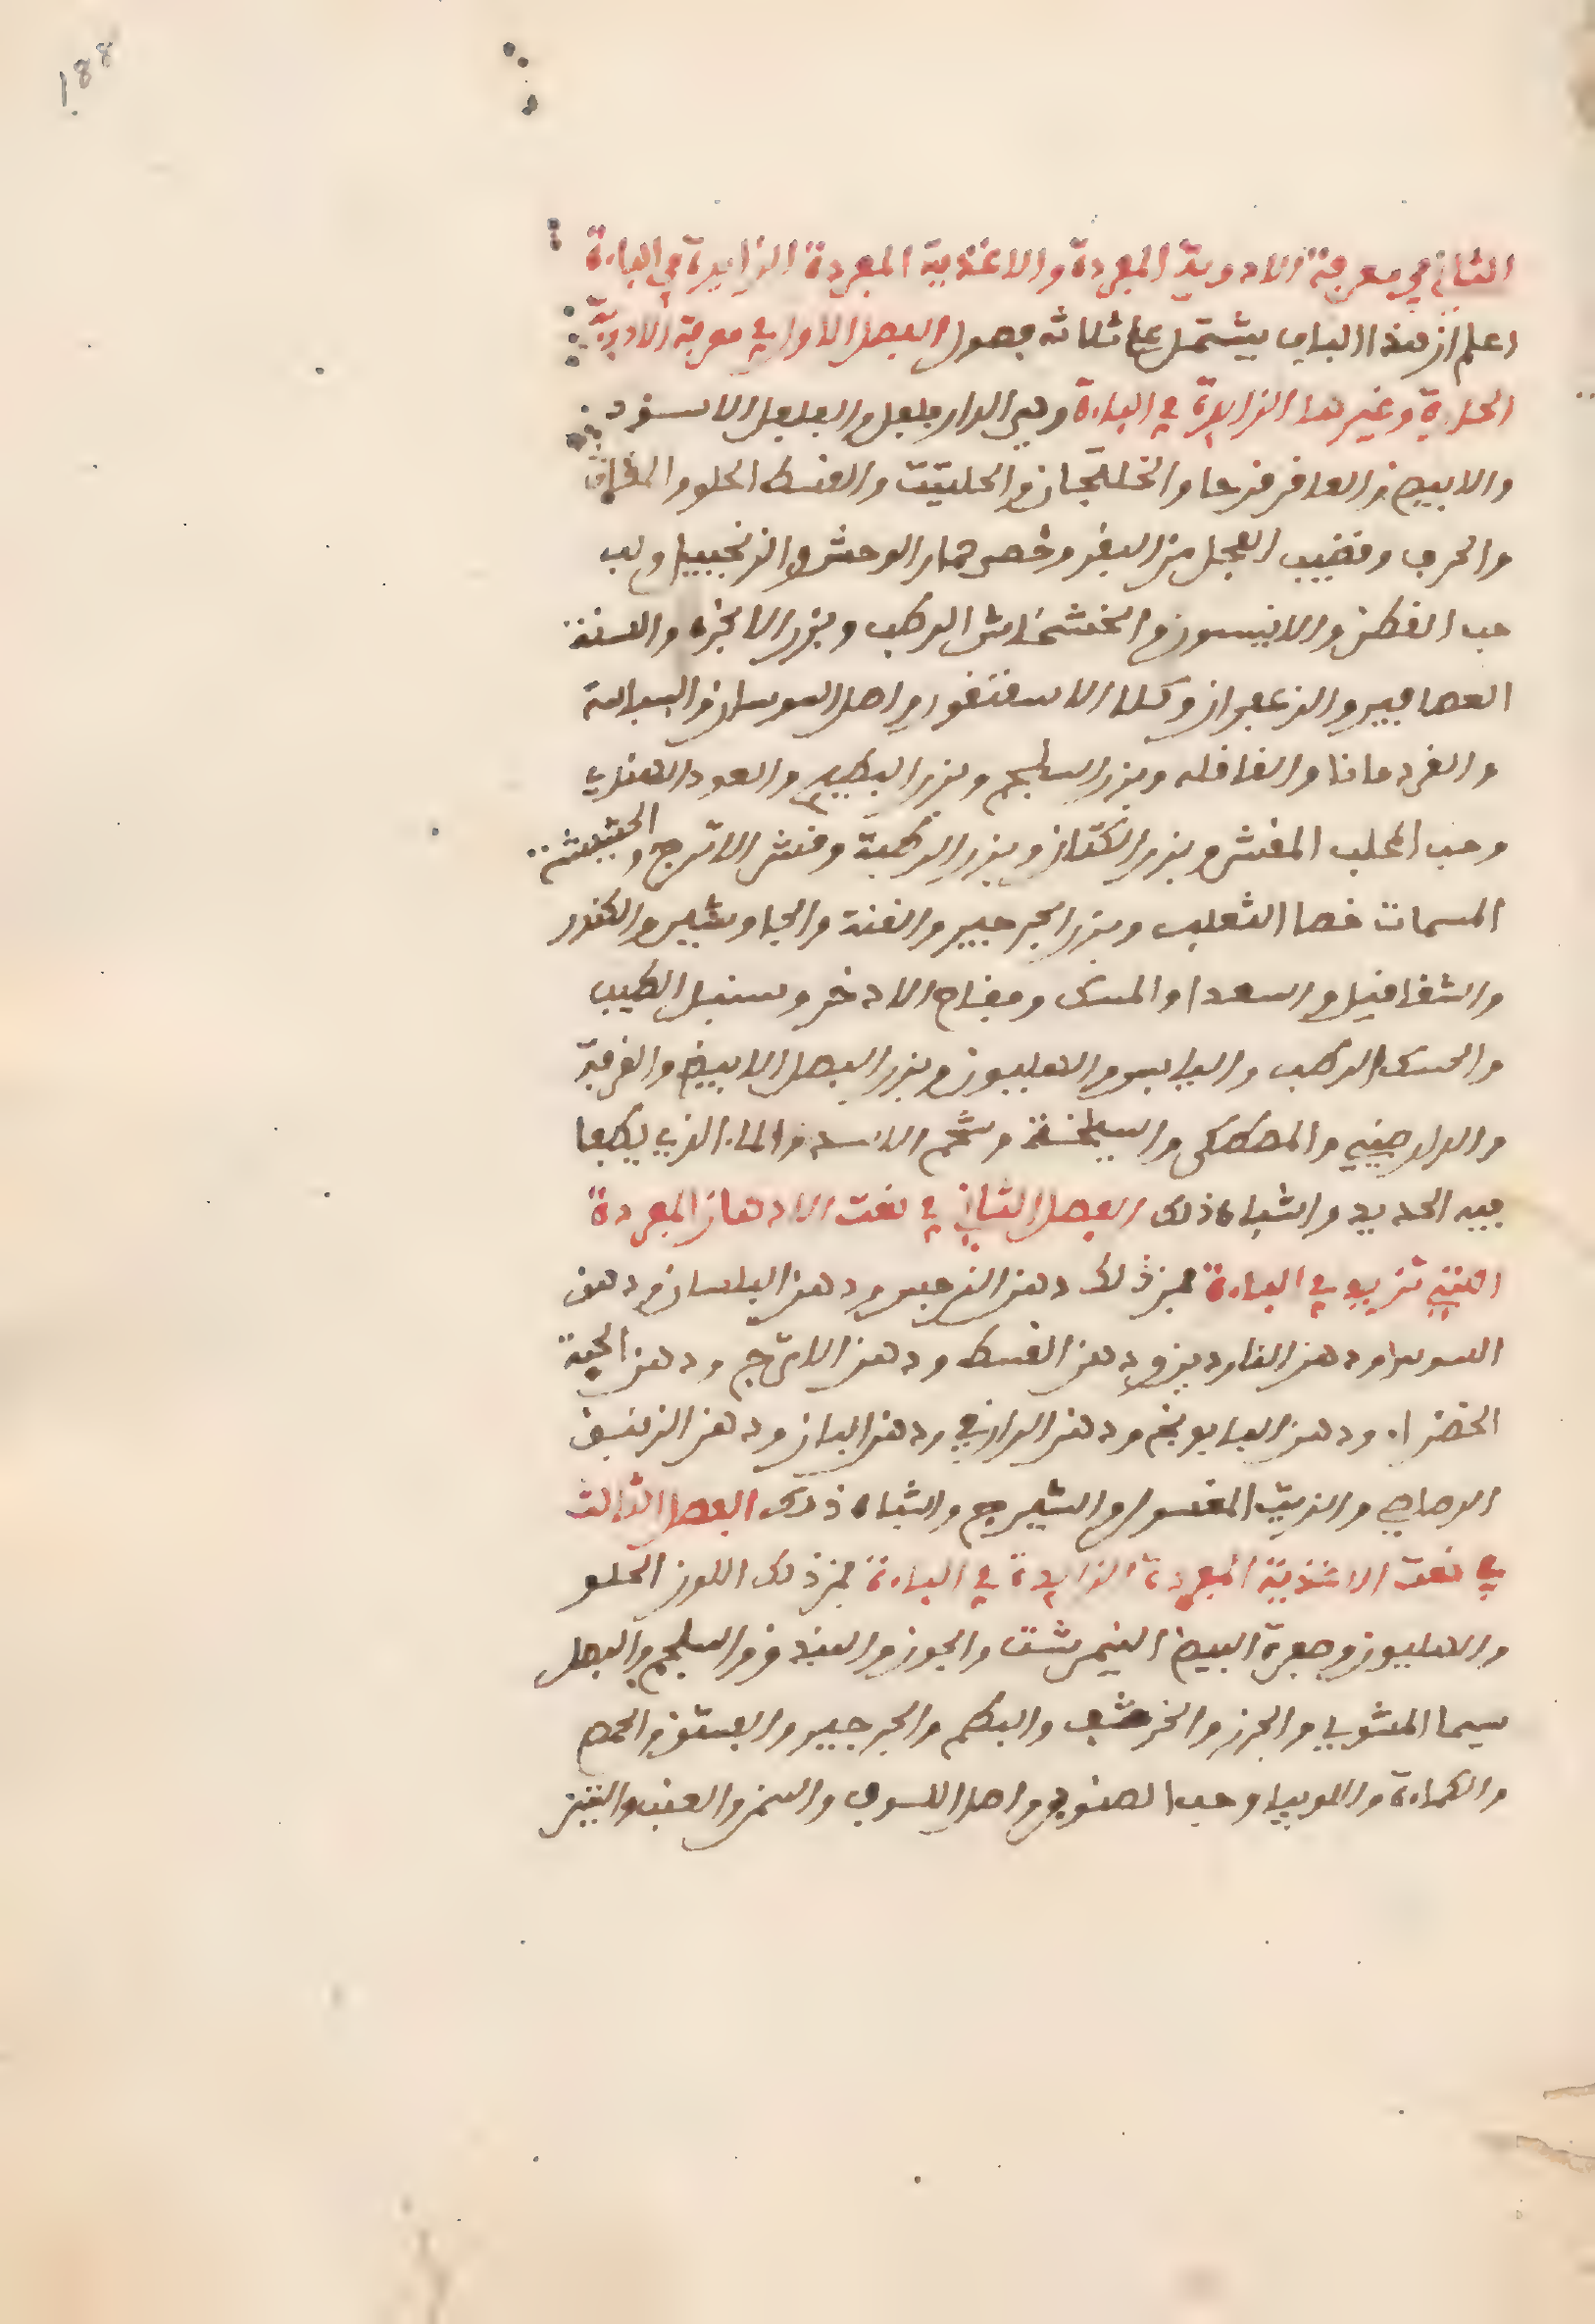 188
الثاني في معرفة الادوية المفردة والاغذية المفردة الزايدة في الباءة
اعلم ان هذا الباب يشتمل على ثلاثه فصول الفصل الاول في معرفة الادوية
الحارة وغيرها الزايدة في الباءة وهي الدار فلفل والفلفل الاسود
والابيض والعاقر قرحا والخلنجان والحلتيت والقسط الحلو
والحرف وقضيب العجل من البقر وخصى حمار الوحش والزنجبيل ولب
حب القطن والانيسون والخشخاش الرطب وبزر الانجرة والسنة
العصافير والزعفران وكلا الاسقنقور واصل السوسان والبسباسة
والقردمانا والقاقله وبزر السلجم وبزر البطيخ والعود الهندي
وحب المحلب المقشر وبزر الكتان وبزر الرطبة وقشر الاترج والحشيشة
المسمات خصا الثعلب وبزر الجرجير والقنة والجاوشير والكندر
والشقاقيل والسعدا والمسك وفقاح الادخر وسنبل الطيب
والحسك الرطب واليابس والهليون وبزر البصل الابيض والقرفة
والدارصيني والمصطكى والسليخة وشحم الاسد والماء الذي يطفا
فيه الحديد واشباه ذلك الفصل الثاني في نعت الادهان المفردة
التي تزيد في الباءة فمن ذلك دهن النرجس ودهن البلسان ودهن
السوسن ودهن الناردين ودهن القسط ودهن الاترج ودهن الحبة
الخضراء ودهن البابونج ودهن الرازقي ودهن البان ودهن الزنبق
الرصاصي والزيت المغسول والشيرج واشباه ذلك الفصل الثالث
في نعت الاغذية المفردة الزايدة في الباءة فمن ذلك اللوز الحلو
والهليون وصفرة البيض النيمرشت والجوز والبندق والسلجم والبصل
سيما المشوي والجزر والخرشف والبطم والجرجير والفستق والحمص
والكماءة واللوبيا وحب الصنوبر واصل اللوف والسمن والعنب والتين